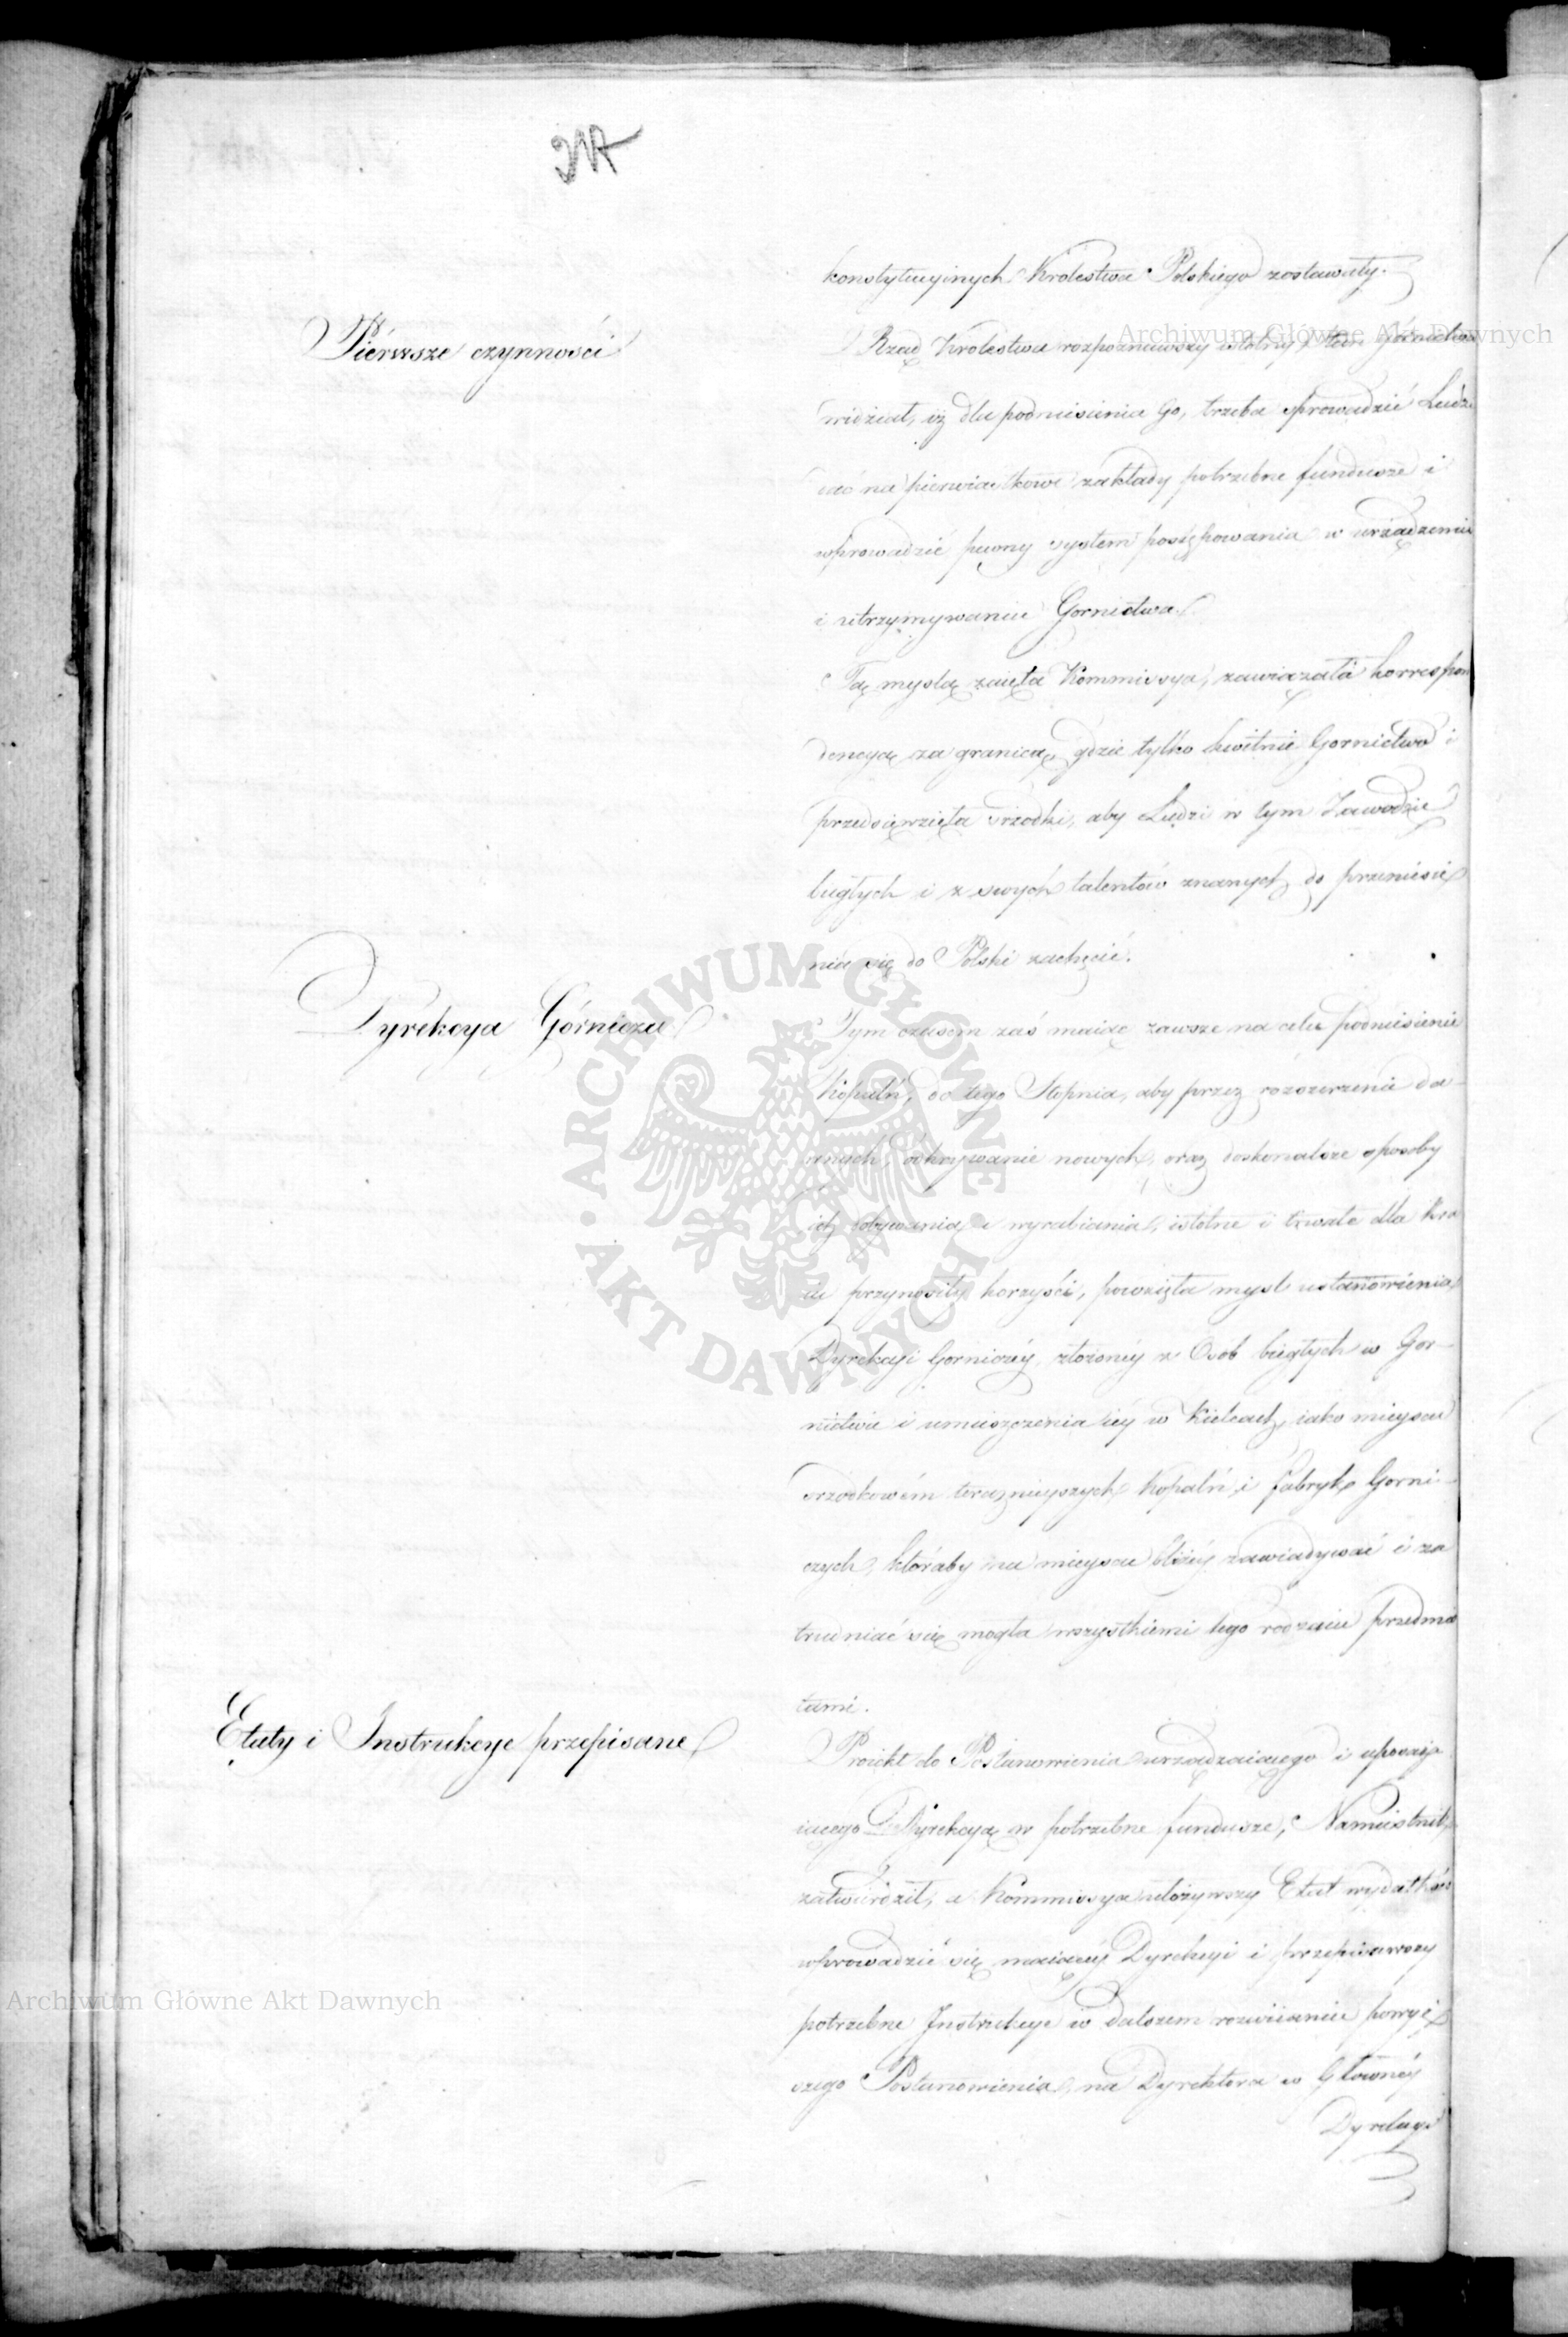 217
konstytucyinych Krolestwa Polskiego zostawały.
Pierwsze czynności
Rząd Krolestwa rozpoznawszy istotny stan Górnictwa
widział, iż dla podniesienia Go, trzeba sprowadzić Ludzi
dać na pierwiastkowe zakłady potrzebne fundusze i
wprowadzić pewny system postępowania w urządzeniu
i utrzymywaniu Gornictwa.
Tą myslą zaięta Kommissya, zawiązała korrespon
dencyą za granicą, gdzie tylko kwitnie Gornictwo i
przedsięwzięła srzodki, aby Ludzi w tym Zawodzie
biegłych i z swych talentów znanych do przeniesie
nia się do Polski zachęcić.
Dyrekcya Górnicza
Tym czasem zaś maiąc zawsze na celu podniesienie
Kopalń, do tego Stopnia, aby przez rozszerzenie da-
wnych, odkrywanie nowych, oraz doskonalsze sposoby
ich dobywania i wyrabiania, istotne i trwałe dla kra
iu przynosiły korzyści, powzięła mysl ustanowienia
Dyrekcyi Gorniczéy, złożonéy z Osób biegłych w Gor-
nictwie i umieszczenia iéy w Kielcach, iako mieyscu
srzodkowém teraznieyszych Kopalń i fabryk Gorni-
czych, któraby na mieyscu bliżéy zawiadywać i za
trudniać się mogła wszystkiemi tego rodzaiu przedmio
tami.
Etaty i Instrukcye przepisane
Proiekt do Postanowienia urządzaiącego i uposaża
iącego Dyrekcyą w potrzebne fundusze, Namiestnik
zatwierdził, a Kommissya ułożywszy Etat wydatków
wprowadzić się maiącéy Dyrekcyi i przepisawszy
potrzebne Instrukcye w dalszem rozwiianiu powyż
szego Postanowienia, na Dyrektora w Głownéy
Dyrekcyi
Archiwum Główne Akt Dawnych
Archiwum Główne Akt Dawnych
ARCHIWUM GŁÓWNE AKT DAWNYCH